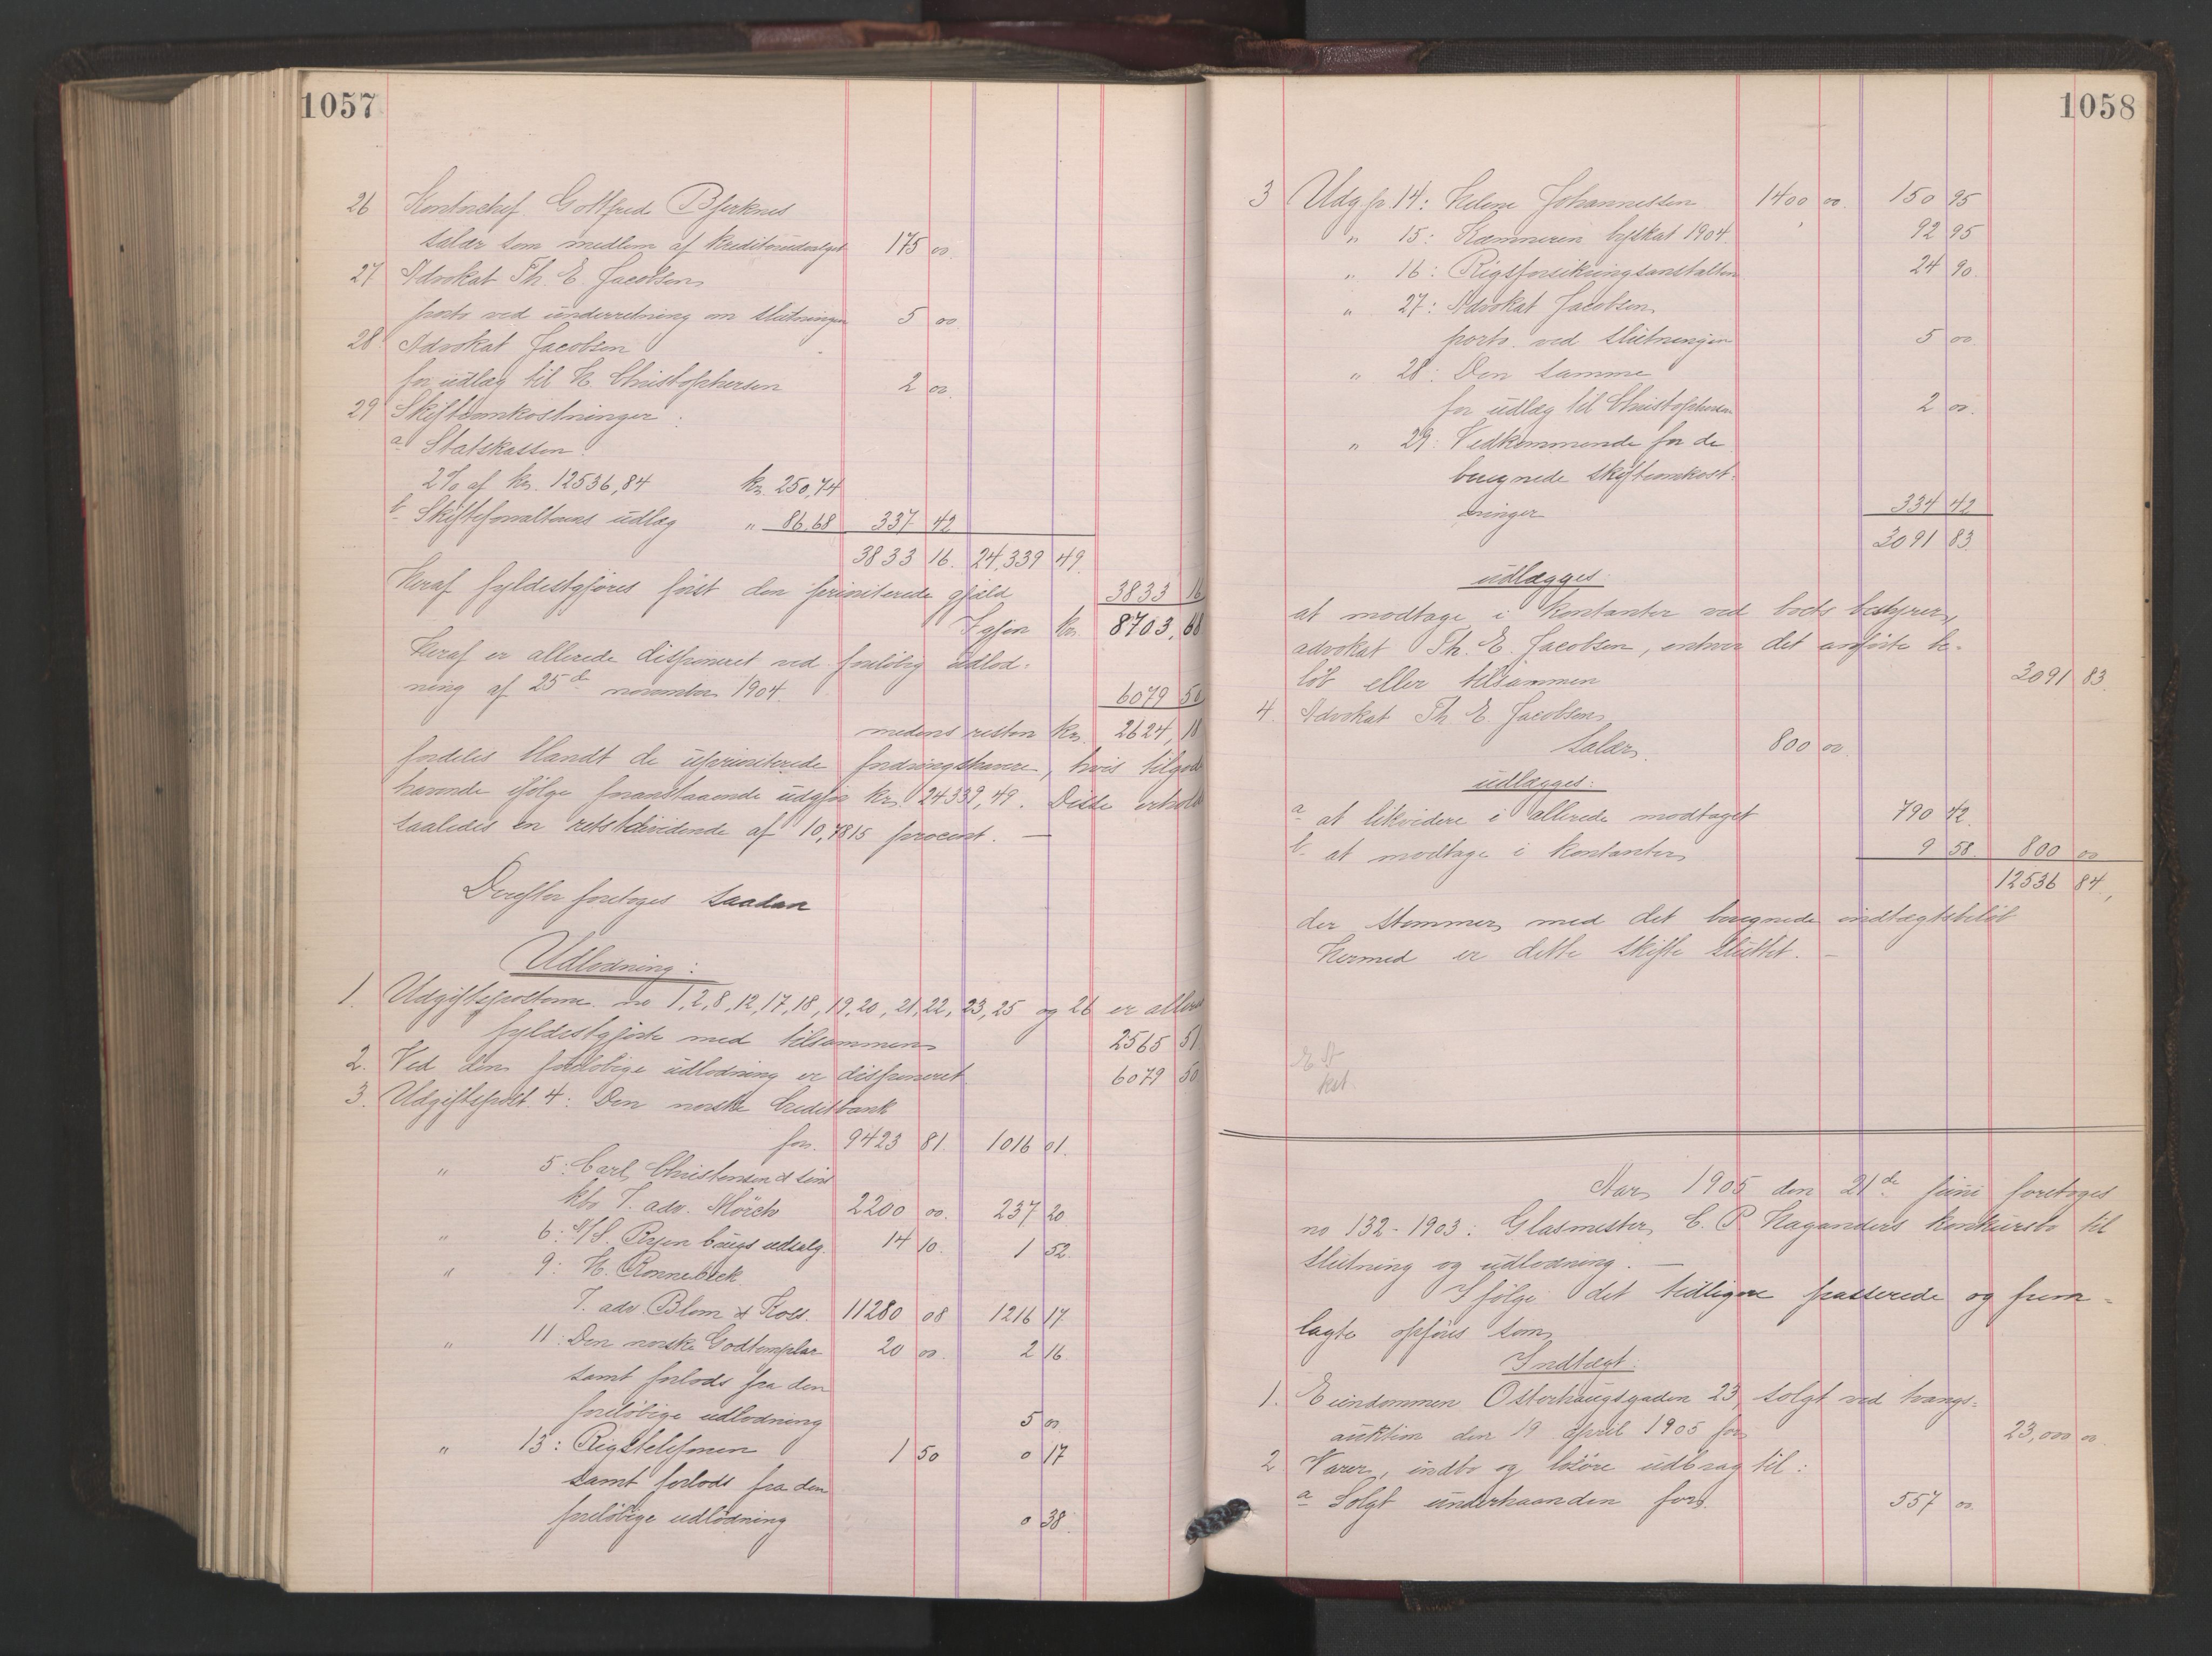 1057
26 Kontorchef Gottfred Bjerknes
salær som medlem af kreditorudvalget 175 00.
27 Advokat Th. E. Jacobsen
porto ved underretning om slutningen 5 00
28 Advokat Jacobsen
for udlæg til H. Christophersen 2 00.
29 Skifteomkostninger:
a Statskassen.
2% af kr. 12536,84 kr. 250,74
b. Skifteforvalterens udlæg " 86.68 337 42
3833 16. 24,339 49.
Heraf fyldestgjøres først den prioriterede gjæld 3833 16
Igjen kr. 8703,68
Heraf er allerede disponeret ved foreløbig udlod-
ning af 25de november 1904. 6079 50
medens resten kr. 2624,18
fordeles blandt de uprioriterede fordringshavere, hvis tilgode
havende ifølge foranstaaende udgjør kr. 24339,49. Disse erholde
saaledes en restdividende af 10,7815 procent. —
Derefter foretoges saadan
Udlodning:
1. Udgiftsposterne no 1, 2, 8, 12, 17, 18, 19, 20, 21, 22, 23, 25 og 26 er allerede
fyldestgjorte med tilsammen 2565 51
2. Ved den foreløbige udlodning er disponeret 6079 50
3. Udgiftspost 4: Den norske Creditbank
for. 9423 81. 1016 01.
" 5: Carl Christensen & søns
kbo T. adv. Mörch 2200 00. 237 20
" 6: A/S. Ryen bàugs udsalg. 14 10. 1 52.
" 9: H. Rønnebeck
T. adv. Blom & Koss. 11280 08 1216 17.
" 11: Den norske Godtemplar 20 00. 2 16
samt forlods fra den
foreløbige udlodning 5 00
" 13: Rigstelefonen 1 50 0 17
samt forlods fra den
foreløbige udlodning 0 38.
1058
3 Udg.p. 14: Helene Johannessen 1400 00. 150 95
" 15: Kæmneren byskat 1904. 92 95
" 16: Rigsforsikringsanstalten 24 90.
" 27: Advokat Jacobsen
porto ved slutningen 5 00.
" 28: Den samme
for udlæg til Christophersen 2 00.
" 29: Vedkommende for de
beregnede skifteomkost-
ninger 337 42
3091 83
udlægges:
at modtage i kontanter ved boets bestyrer,
advokat Th. E. Jacobsen, enhver det anførte be-
løb eller tilsammen 3091 83.
4. Advokat Th. E. Jacobsen
salær. 800 00.
udlægges:
a at likvidere i allerede modtaget 790 42.
b. at modtage i kontanter 9 58. 800 00
12536 84,
der stemmer med det beregnede indtægtsbeløb
Hermed er dette skifte sluttet. —
Aar 1905 den 21de juni foretoges
no 132-1903: Glasmester C. P. Haganders konkursbo til
slutning og udlodning. —
Ifølge det tidligere passerede og frem-
lagte opføres som
Indtægt.
1. Eiendommen Osterhaugsgaden 23, solgt ved tvangs-
auktion den 19 april 1905 for 23,000 00.
2 Varer, indbo og løsøre udbragt til:
a Solgt underhaanden for 557 00.